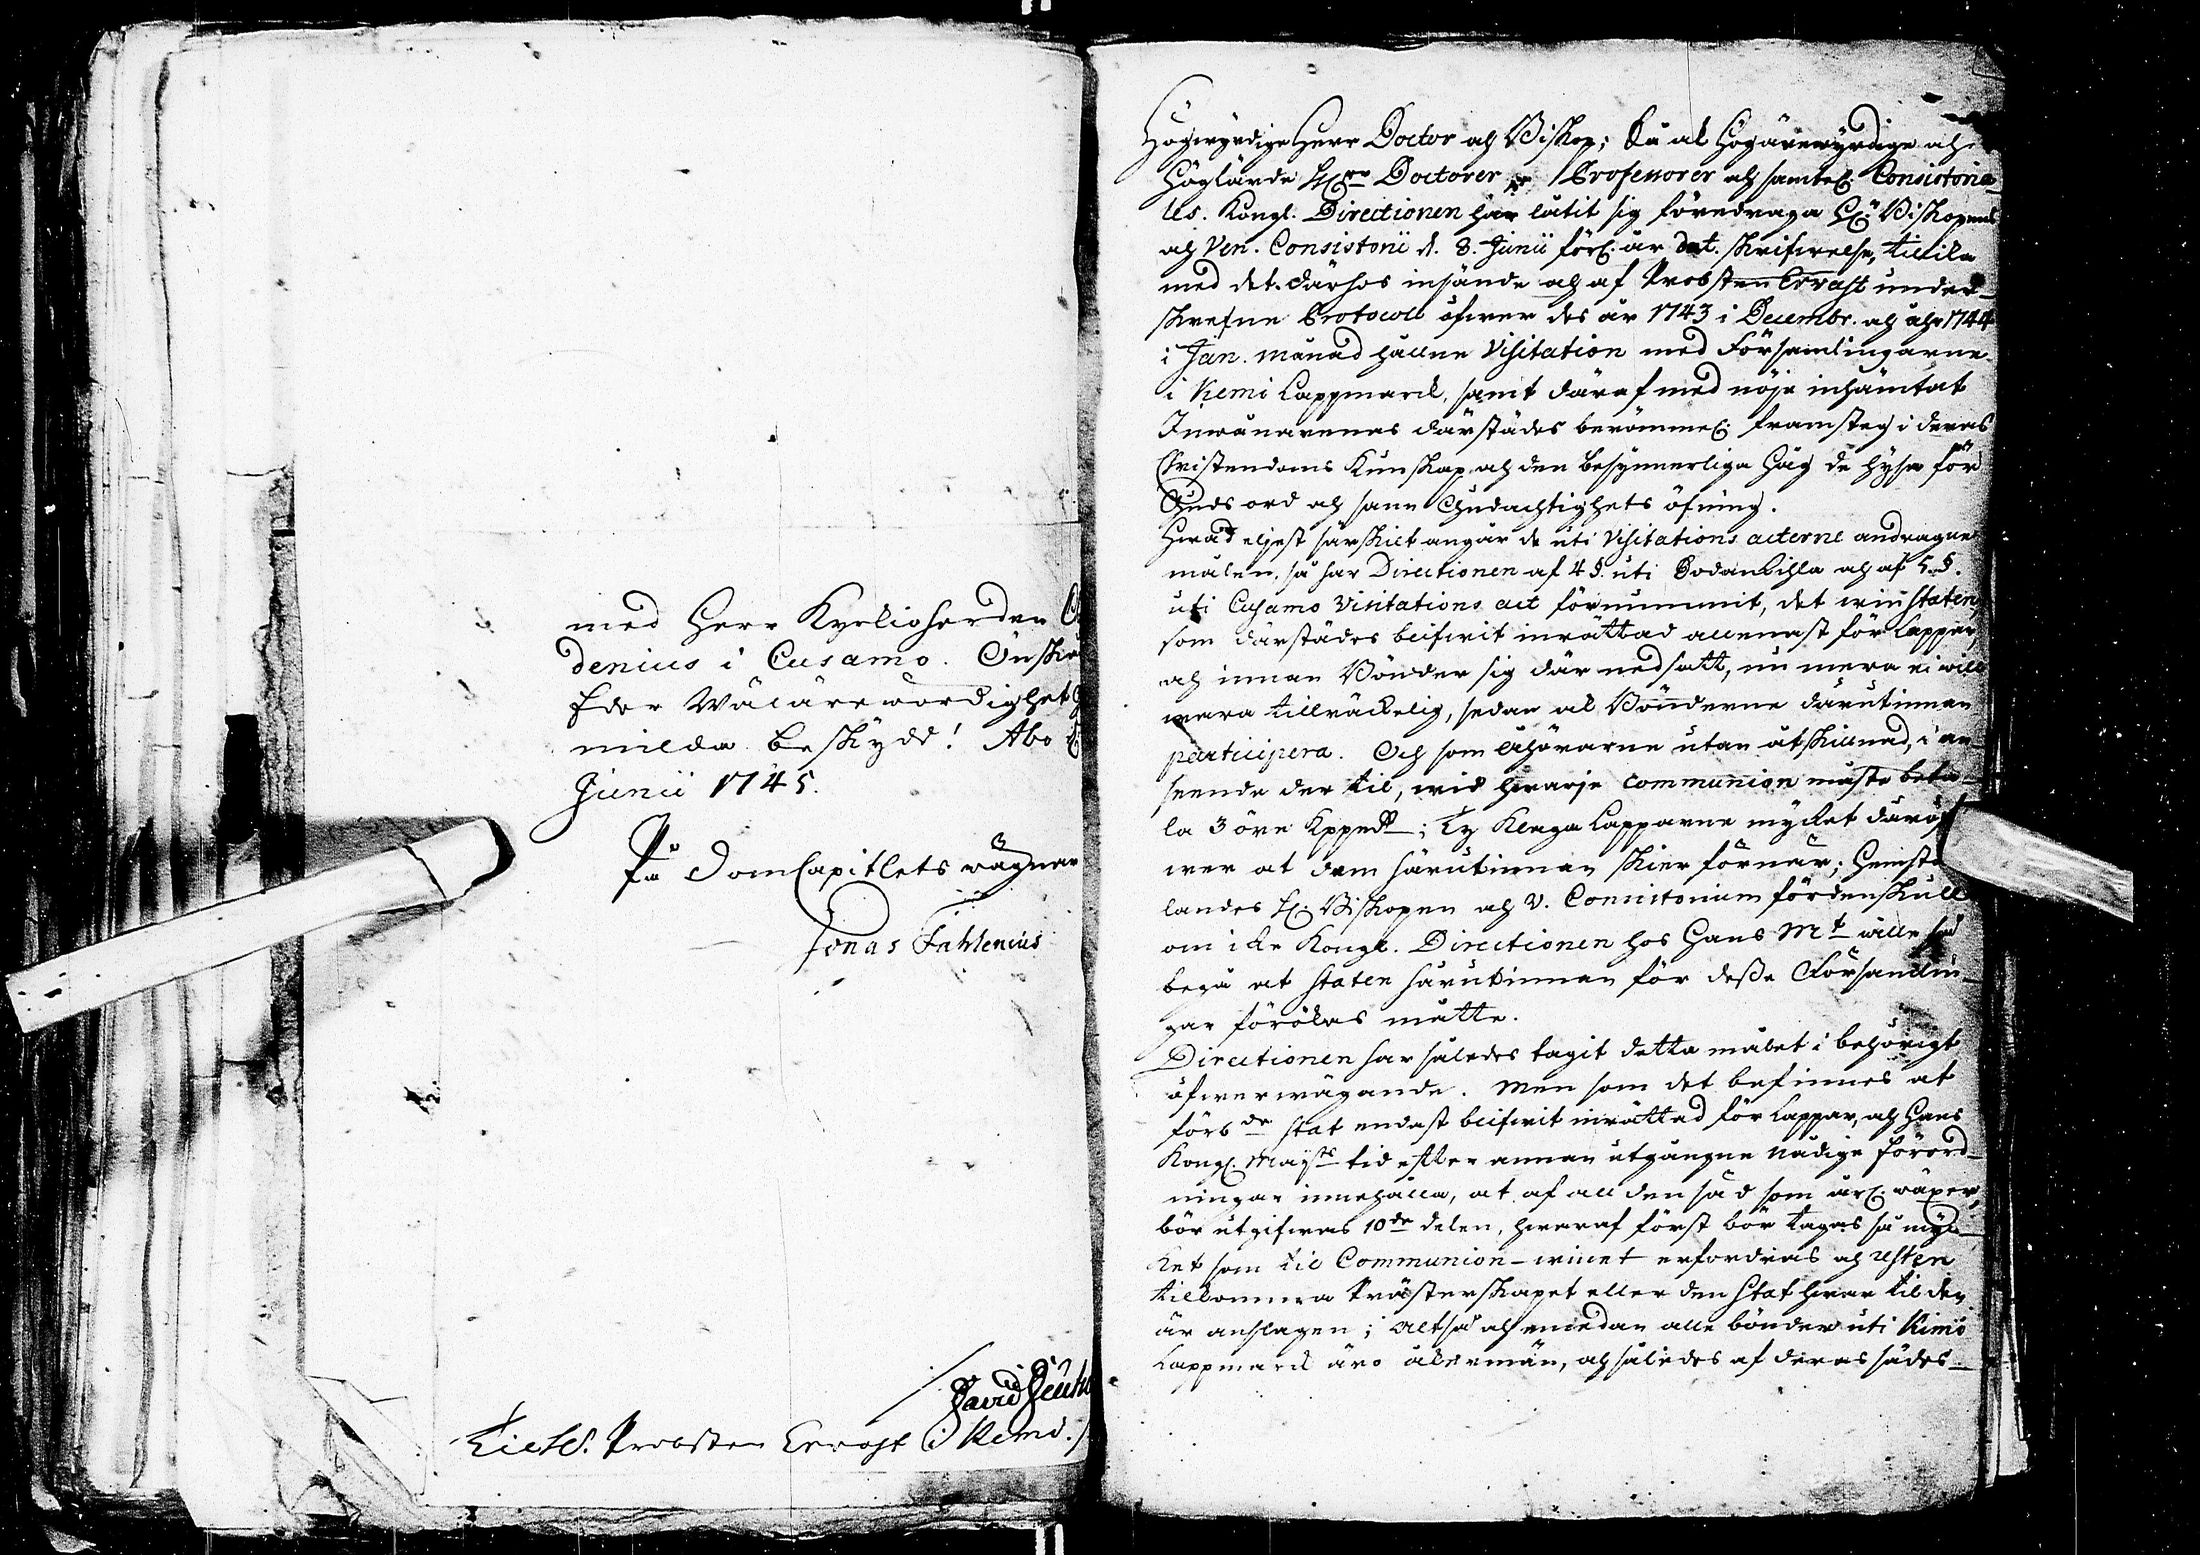 med Herr Kyrkioherden
denius i Cusamo. Önskar
Eder Wälärewördighet
milda beskydd! Abo
Junii 1745.
På DomCapitlets wägnar
Jonas Fahlenius
David Deuts
Til H. Probsten Ervast i Kemi.
Högwyrdige Herr Doctor och Biskop; Så ok Högärewyrdige och
Höglärde Hrr Doctorer Professorer och samtel. Consistoria
les. Kongl. Directionen har låtit sig föredraga Hr Biskopens
och Ven. Consistorii d. 8. Junii förl. år dat. skrifwelse, tillika
med det därhos insände och af Probsten Ervast under-
skrefne Protocoll öfwer des år 1743 i Decembr. och åhr 1744
i Jan. månad hållne Visitation med Församlingarne
i Kemi Lappmark, samt däraf med nöje inhämtat
Inwånarenas därstädes berömmel. framsteg i deras
Christendoms kunskap och den besynnerliga håg de hysa för
Guds ord och sann Gudachtighets öfning.
Hwad eljest särskilt angår de uti Visitations acterne andragne
målen, så har Directionen af 4 §. uti Sodankihla och af 5. §.
uti Cusamo Visitations act förnummit, det winstaten
som därstädes blifwit inrättad allenast för Lappar,
och innan Bönder sig där nedsatt, nu mera ei will
wara tillräckelig, sedan ok Bönderne därutinnan
participera. Och som åhörarne utan åtskillnad, i an-
seende der til, wid hwarje communion måste beta-
la 3 öre Kppmt; Ty klaga Lapparne mycket däröf
wer at dem härutinnan skier förnär; Hemstä
landes H. Biskopen och V. Consistorium fördenskull
om icke Kongl. Directionen hos Hans Mt wille
begä at staten härutinnan för desse Församlin-
gar förökas måtte.
Directionen har således tagit detta målet i behörigt
öfwerwägande. Men som det befinnes at
förbde stat endast blifwit inrättad för Lappar, och Hans
Kongl. Mayts tid efter annan utgångne nådige förord-
ningar innehålla, at af all den säd som årl. wäxer,
bör utgifwas 10de delen, hwaraf först bör tagas så myc-
ket som til Communion-winet erfordras och resten
tilkomma Prästerskapet eller den Stat hwar til den
är anslagen; Altså och emedan alle bönder uti Kimi
Lappmark äro åkermän, och således af deras sädes-